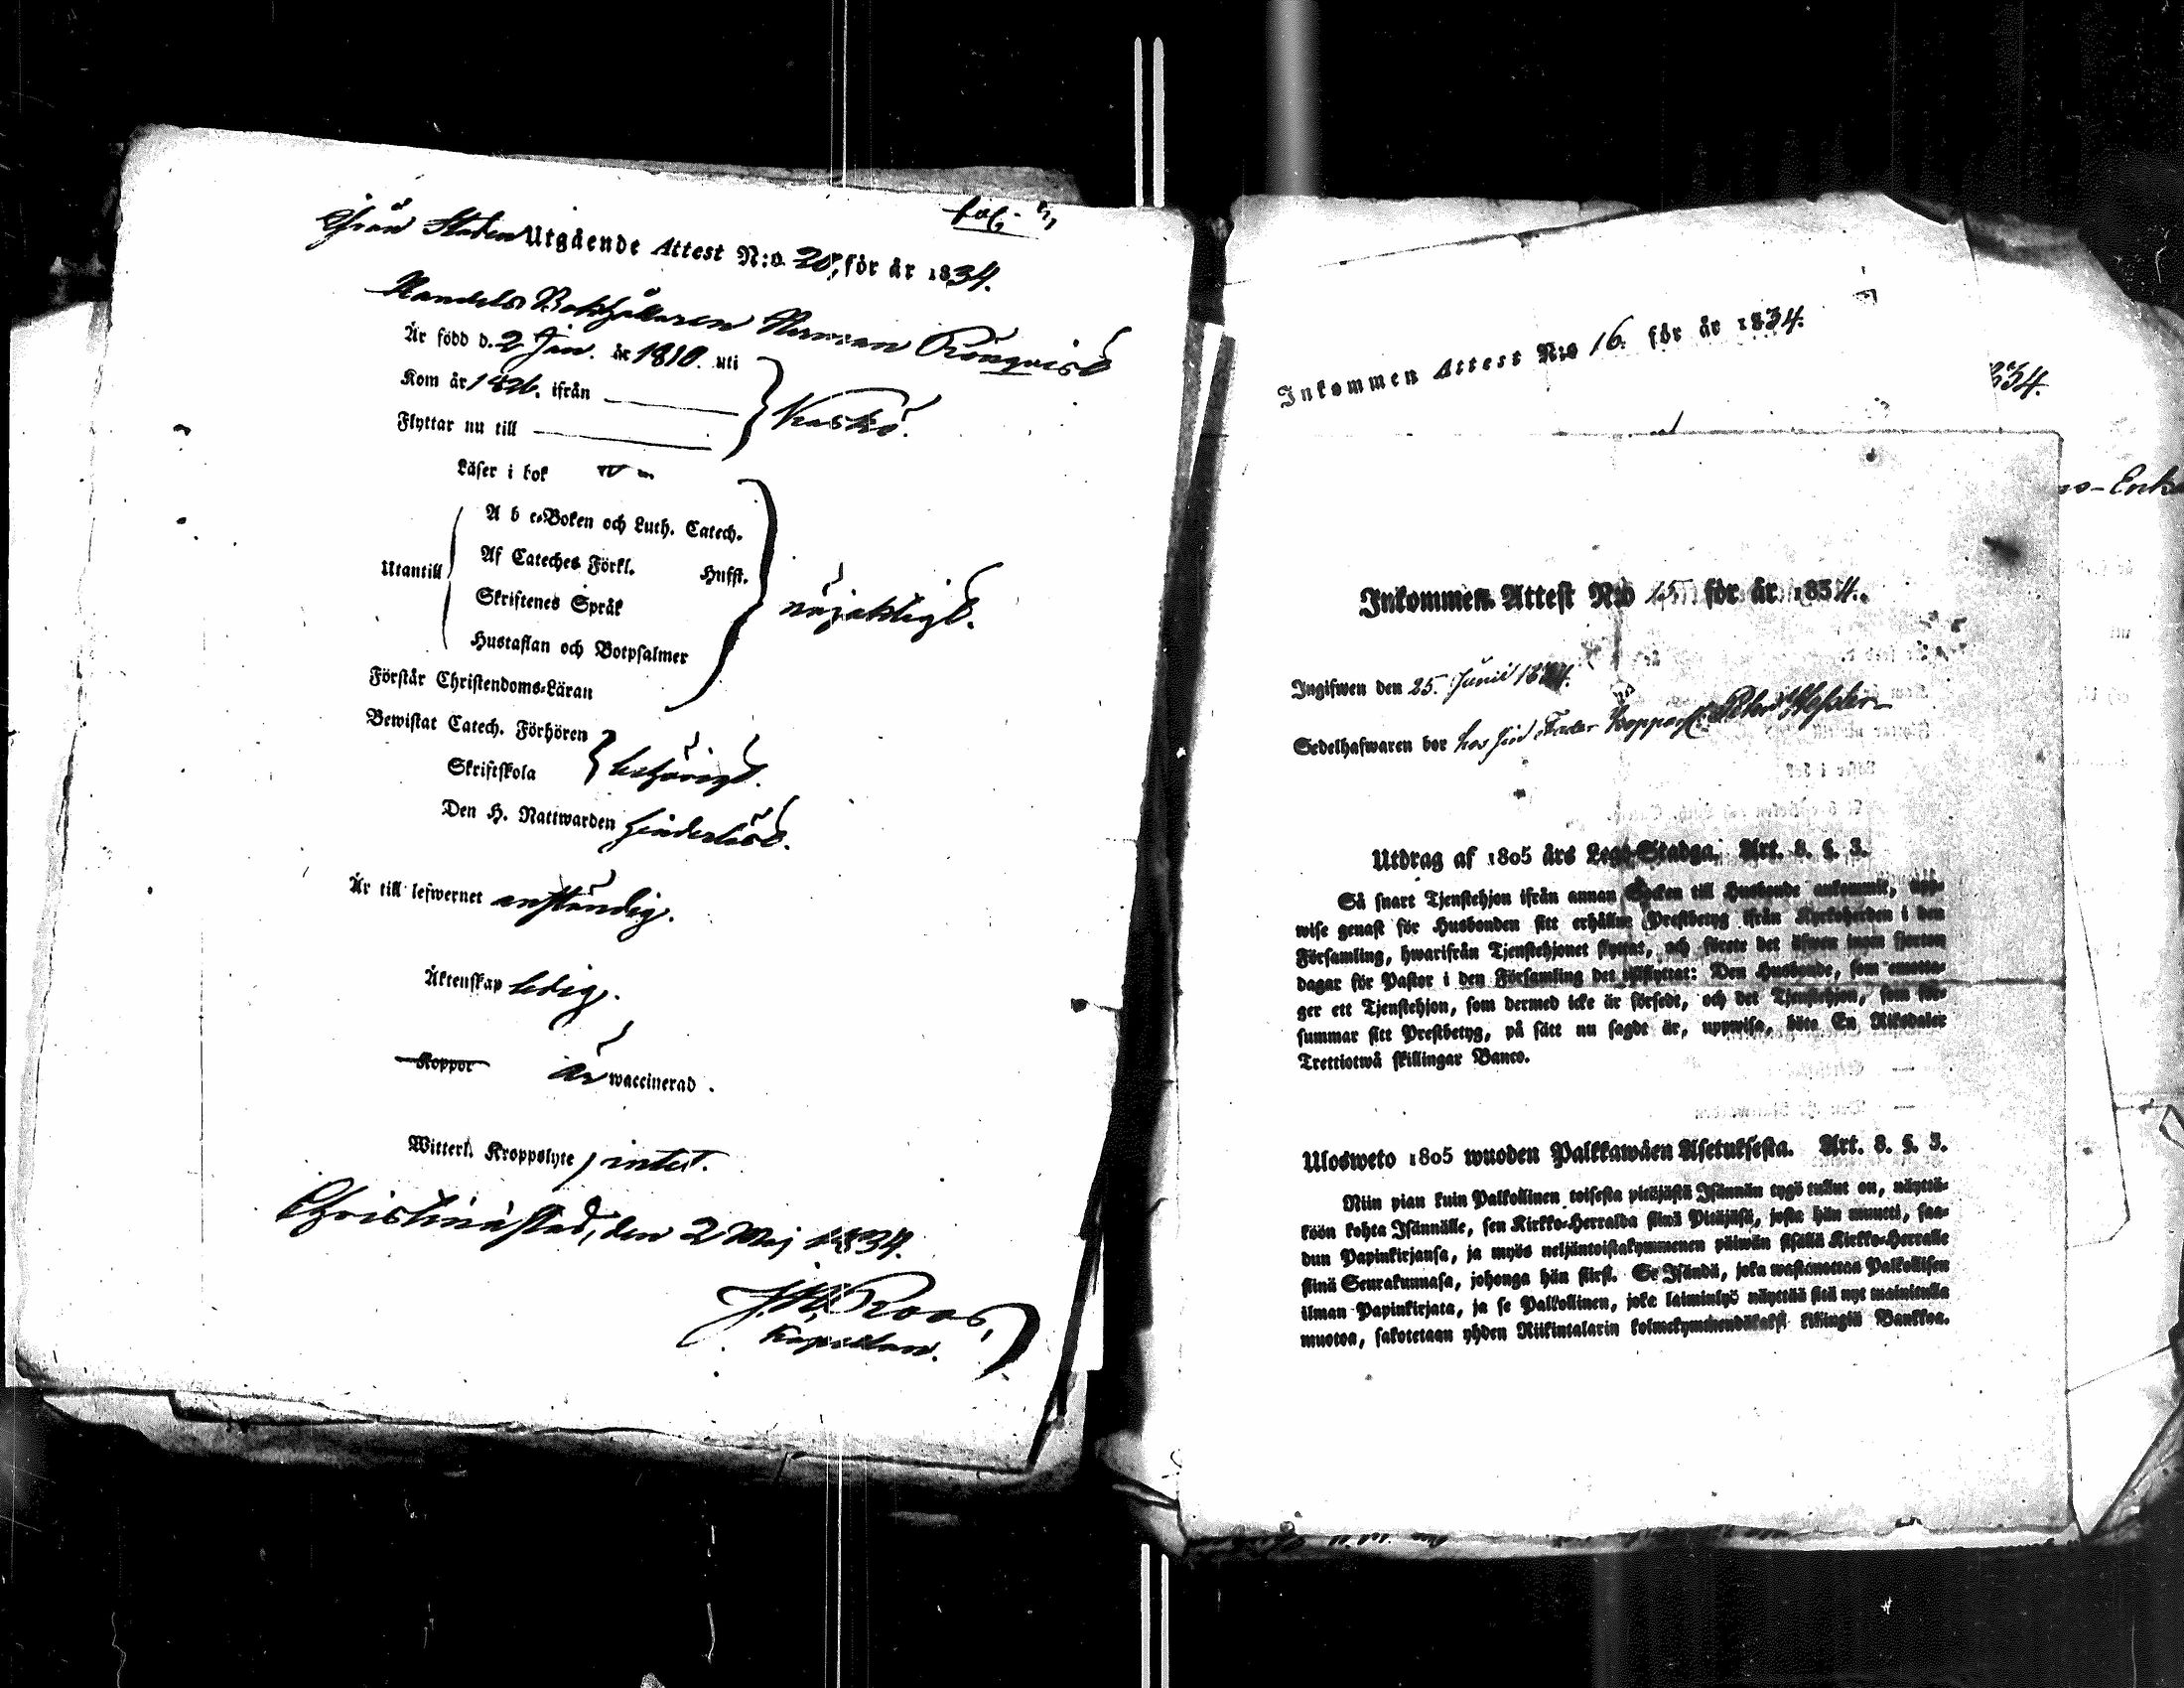 fol.
Från Staden Utgående Attest N:o 20, för år 1834.
Handels Bokhållaren Herman Rönqvist
Är född d. 2 Jan. år 1810. uti
Kom år 1826. ifrån
Flyttar nu till
Kaskö.
Läser i bok
A b c-Boken och Luth. Catech.
Af Cateches Förkl. Hufst.
Utantill
Skriftenes Språk
Hustaflan och Botpsalmer
nöjaktigt.
Förstår Christendoms-Läran
Bewistat Catech. Förhören
Skriftskola
behörigt.
Den H. Nattwarden hinderlöst.
Är till lefwernet anständig.
Äktenskap ledig.
Koppor är waccinerad.
Witterl. Kroppslyte intet.
Christinæstad, den 2 Maj 1834.
Roos,
Kapellan.
Inkommen Attest N:o 16. för år 1834.
834.
Inkommen Attest N:o 15 för år 1834.
Ingifwen den 25. Junii 1834.
Sedelhafwaren bor hos sin Fader Kopparsl. Peter
Utdrag af 1805 års Lego-Stadga. Art. 8. §. 3.
Så snart Tjenstehjon ifrån annan Socken till Husbonde ankommit, upp-
wise genast för Husbonden sitt erhållne Prestbetyg ifrån Kyrkoherden i den
Församling, hwarifrån Tjenstehjonet flyttat, och förete det äfwen inom fjorton
dagar för Pastor i den Församling det tillflyttat: Den Husbonde, som emotta-
ger ett Tjenstehjon, som dermed icke är försedt, och det Tjenstehjon, som för-
summar sitt Prestbetyg, på sätt nu sagdt är, uppwisa, böte En Riksdaler
Trettiotwå skillingar Banco.
Ulosweto 1805 wuoden Palkkawäen Asetuksesta. Art. 8. §. 3.
Niin pian kuin Palkollinen toisesta pitäjästä Isännän tygö tullut on, näyttä-
köön kohta Isännälle, sen Kirkko-Herralda siinä Pitäjäsä, josta hän muutti, saa-
dun Papinkirjansa, ja myös neljäntoistakymmenen päiwän sisällä Kirkko-Herralle
siinä Seurakunnasa, johonga hän siirsi. Se Isändä, joka wastanottaa Palkollisen
ilman Papinkirjata, ja se Palkollinen, joka laiminlyö näyttää sitä nyt mainitulla
muotoa, sakotetaan yhden Riikintalarin kolmekymmendäkaksi killingiä Bankkoa.